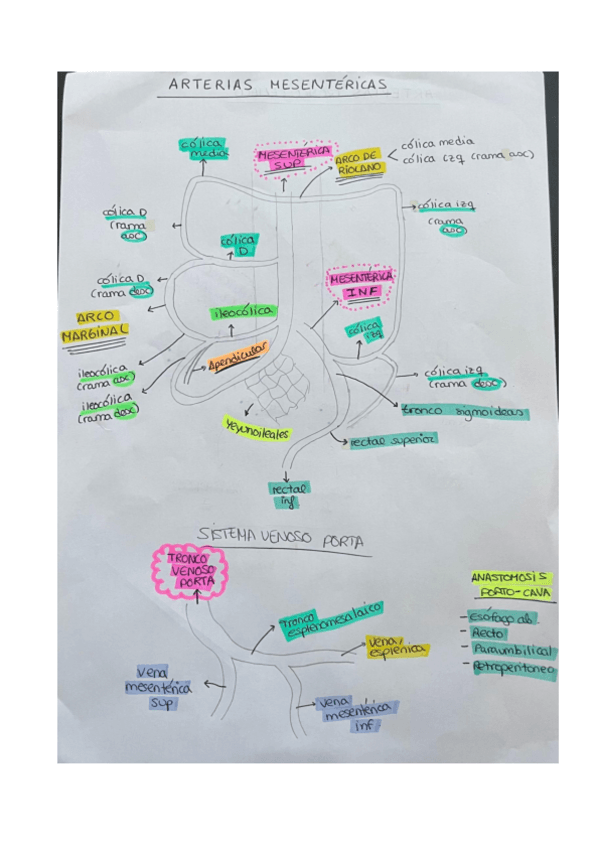 ARTERIAS MESENTÉRICAS
cólica
media
MESENTÉRICA
SUP
ARCO DE
RIOLANO
cólica media
cólica izq (rama asc)
cólica D
(rama
asc)
cólica
D
cólica izq
(rama
asc)
cólica D
(rama desc)
MESENTÉRICA
INF
ARCO
MARGINAL
ileocólica
cólica
izq
Apendicular
ileocólica
(rama asc)
ileocólica
(rama desc)
cólica izq
(rama desc)
tronco sigmoideas
yeyunoileales
rectal superior
rectal
inf
SISTEMA VENOSO PORTA
TRONCO
VENOSO
PORTA
ANASTOMOSIS
PORTO-CAVA
- Esófago ab.
- Recto
- Paraumbilical
- Retroperitoneo
tronco
esplenomesalaico
vena
esplénica
vena
mesentérica
sup
vena
mesentérica
inf